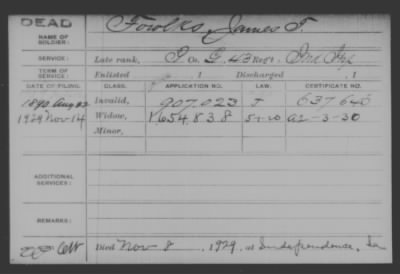 DEAD
NAME OF SOLDIER: Fowlks, James T.
SERVICE: Late rank, P. Co. G, 43 Reg't Ind Inf
TERM OF SERVICE: Enlisted , 1 Discharged , 1
DATE OF FILING. CLASS. APPLICATION NO. LAW. CERTIFICATE NO.
1890 Aug Invalid, 907,023 J 637 640
1929 Nov 14 Widow, 1654,838 5-1-20 A2-3-30
Minor,
ADDITIONAL SERVICES:
REMARKS:
Died Nov 8, 1929, at Independence,